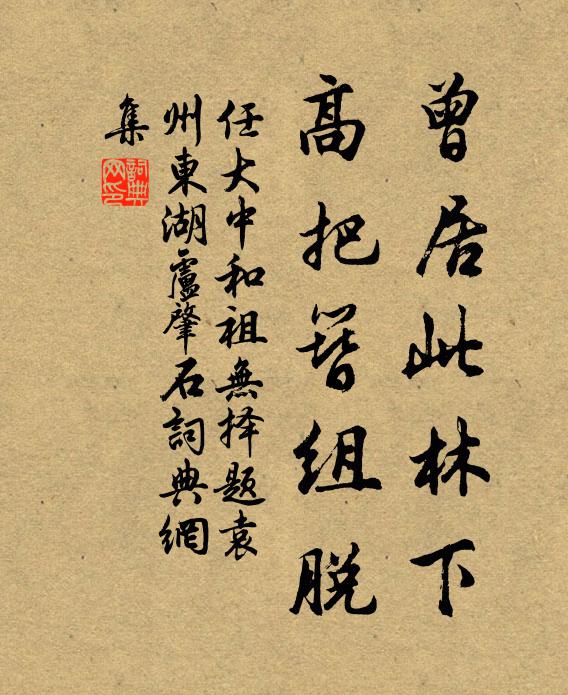 曾居此林下
高把簪組脫
任大中和祖無择題袁
州東湖盧肇石詞典網
集
詞典網印